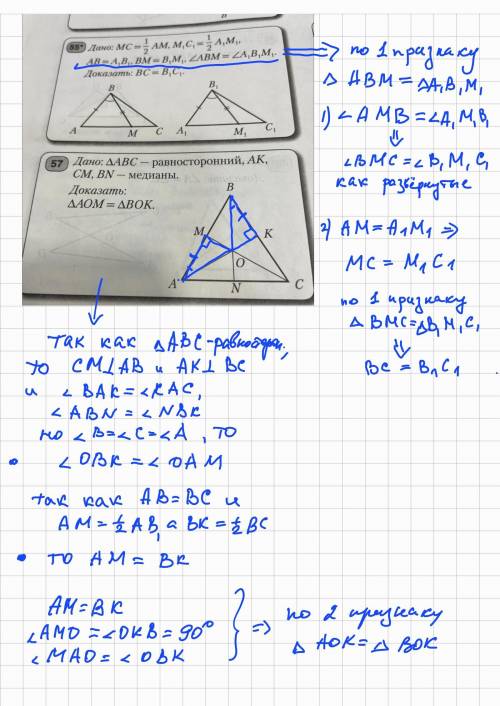 55* Дано: MC = 1/2 AM, M₁C₁ = 1/2 A₁M₁,
AB = A₁B₁, BM = B₁M₁, ∠ABM = ∠A₁B₁M₁.
Доказать: BC = B₁C₁.
B
B₁
A
M
C
A₁
M₁
C₁
57 Дано: △ABC — равносторонний, AK,
CM, BN — медианы.
Доказать:
△AOM = △BOK.
B
M
K
O
A
N
C
по 1 признаку
△ ABM = △A₁B₁M₁
1) ∠AMB = ∠A₁M₁B₁
⇓
∠BMC = ∠B₁M₁C₁
как развёрнутые
2) AM = A₁M₁ ⇒
MC = M₁C₁
по 1 признаку
△ BMC = △B₁M₁C₁
⇓
BC = B₁C₁
так как △ABC - равносторон,
то CM⊥AB и AK⊥BC
и ∠BAK = ∠KAC,
∠ABN = ∠NBK
но ∠B = ∠C = ∠A, то
• ∠OBK = ∠OAM
так как AB = BC и
AM = 1/2 AB, а BK = 1/2 BC
• то AM = BK
AM = BK
∠AMO = ∠OKB = 90°
∠MAO = ∠OBK
⇒ по 2 признаку
△ AOK = △ BOK